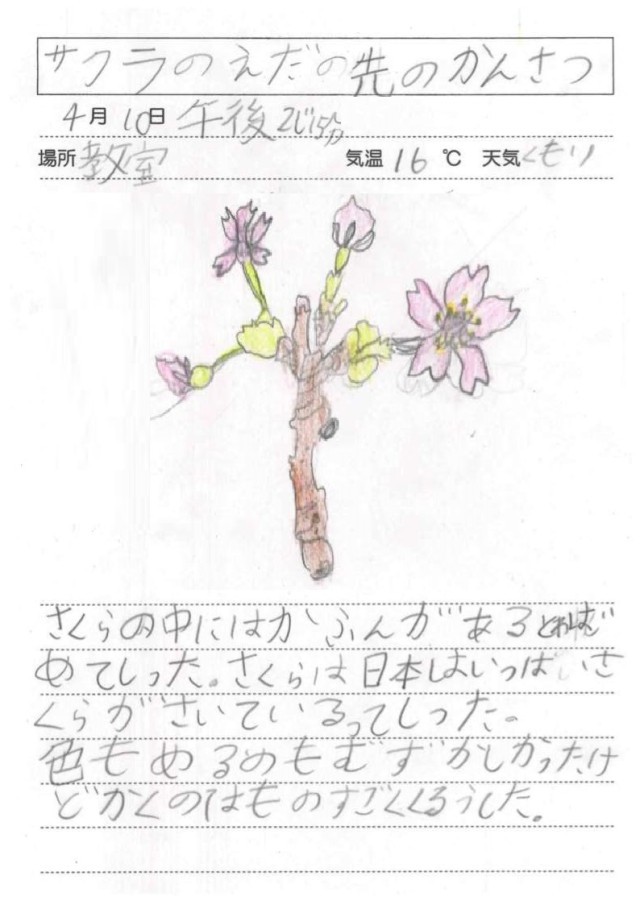 サクラのえだの先のかんさつ
4月10日 午後2じ15分
場所 教室 気温 16 ℃ 天気 くもり
さくらの中にはかふんがあるとはじ
めてしった。さくらは日本はいっぱいさ
くらがさいているってしった。
色もめるのもむずかしかったけ
どかくのはものすごくくろうした。